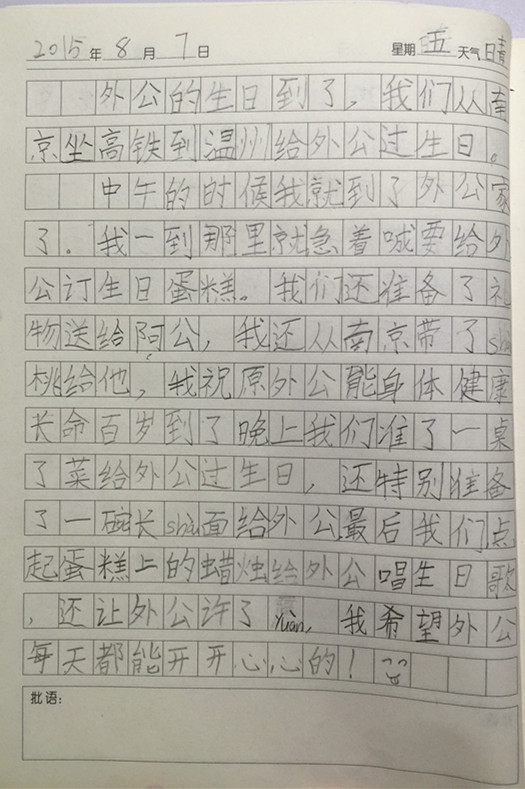 2015年8月7日 星期五 天气晴
外公的生日到了，我们从南
京坐高铁到温州给外公过生日。
中午的时候我就到了外公家
了．我一到那里就急着喊要给外
公订生日蛋糕。我们还准备了礼
物送给阿公，我还从南京带了shòu
桃给他，我祝原外公能身体健康
长命百岁到了晚上我们准了一桌
了菜给外公过生日，还特别准备
了一碗长shòu面给外公最后我们点
起蛋糕上的蜡烛给外公唱生日歌
，还让外公许了yuàn，我希望外公
每天都能开开心心的！
批语：